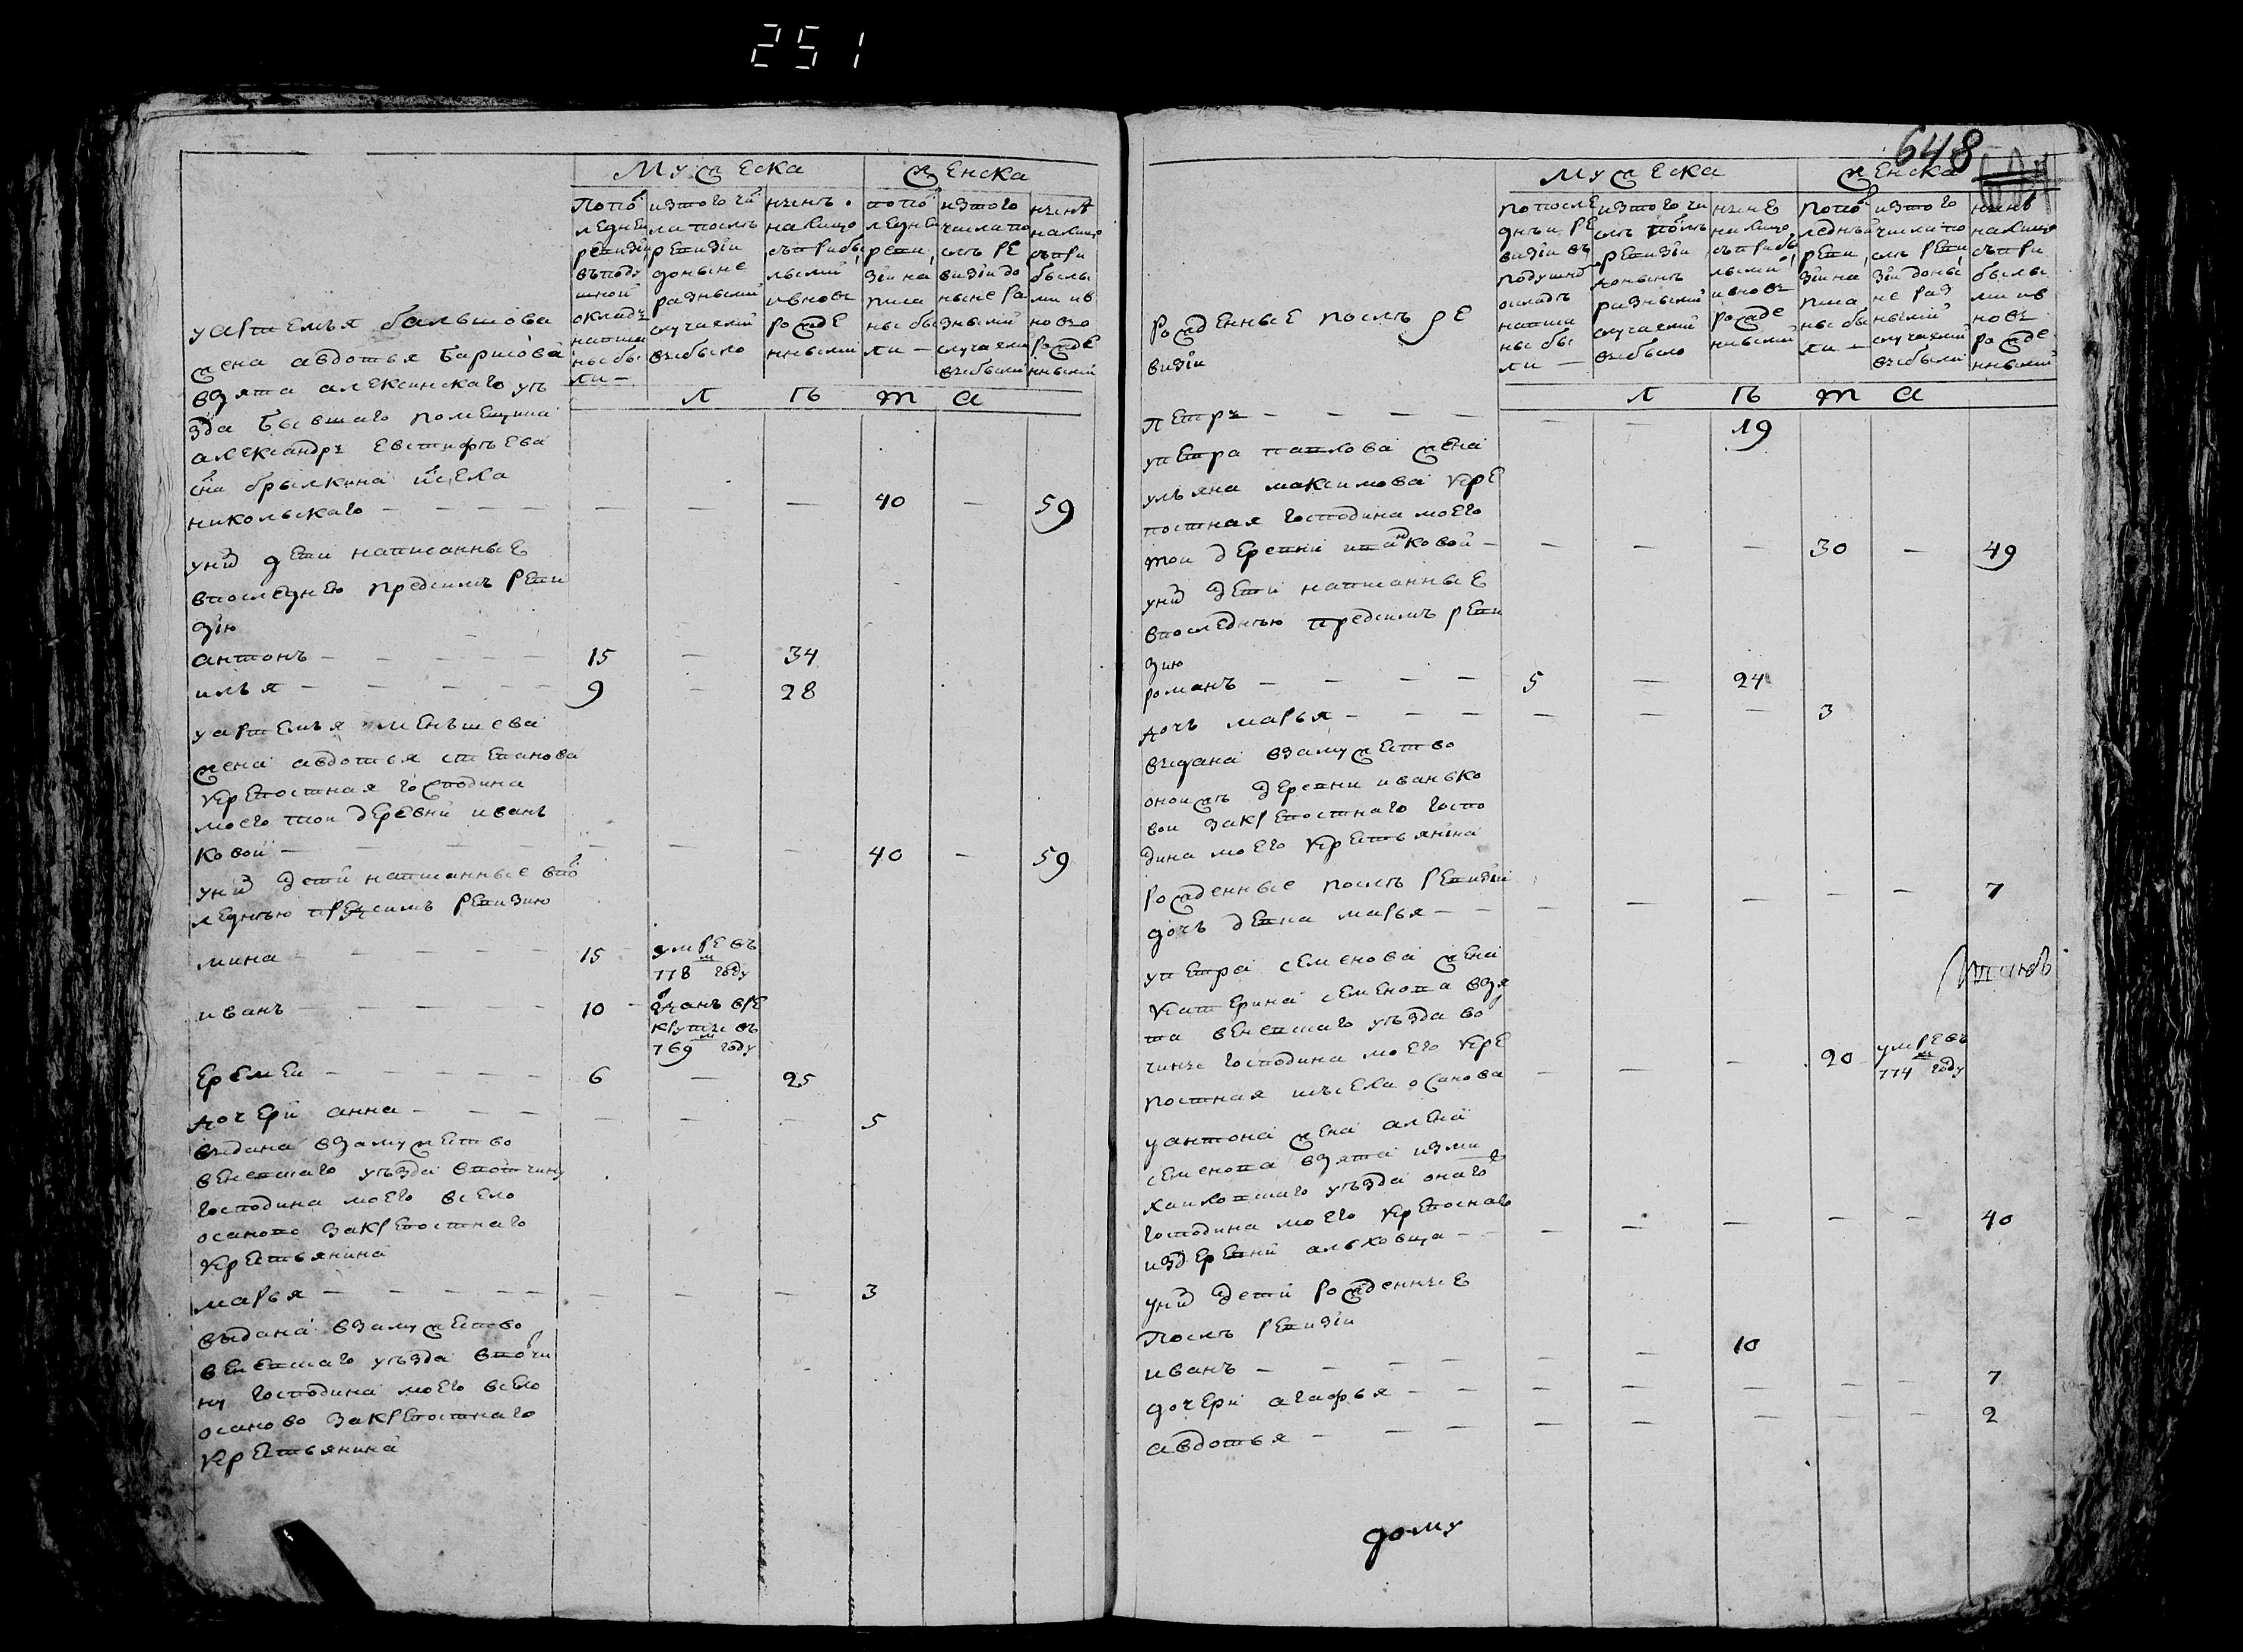 251
648
Мужеска
женска
попо
ледне
ревизи
въподу
шной
окладъ
написа
ны бы
ли —
изтого чи
ла послъ
ревизіи
доныне
разными
случаями
выбыло
нынъ
налицо
съприбы
лыми
ивновь
рожде
нными
попо
ледне
реви
зіи на
писа
ны бы
ли —
изтого
числа по
слъ ре
визіи до
ныне ра
зными
случаями
выбыли
нынъ
налицо
съпри
былы
ми ив
новь
рожде
нными
л ѣ т а
уартемья большова
жена авдотья барисова
взята алексинскаго уѣ
зда бывшаго помещика
александръ евстифѣева
сна брылкина исела
никольскаго — — — — — — — 40 — 59
унихъ дети написанные
впоследнею предсимъ реви
зію
антонъ — — — — — 15 — 34
илья — — — — — 9 — 28
уартемья меньшева
жена авдотья степанова
крепостная господина
моего тои деревни ивань
ковой — — — — — — — — 40 — 59
унихъ дети написанные впо
леднѣю предсимъ ревизию
мина — — — — 15 умре въ
778 году
иванъ — — — — — 10 — отданъ вре
круты въ
769 году
еремеи — — — — — 6 — 25
дочери анна — — — — — — 5
выдана взамужетво
веневшаго уѣзда ввотчину
господина моего всело
осаново закрепостнаго
крестьянина
марья — — — — — — — — 3
выдана взамужетво
веневшаго уѣзда ввочи
ну господина моего всело
осаново закрепостнаго
крестьянина
Мужеска
женска
попосле
днѣи ре
визіи въ
подушно
окладъ
написа
ны бы
ли —
изтого чи
слъ послъ
ревизіи
донынъ
разными
случаями
выбыло
нынѣ
налицо
съприбы
лыми
ивновь
рожде
нными
попо
леднѣи
реви
зіи на
писа
ны бы
ли —
изтого
числа по
слъ реви
зіи доны
не раз
ными
случаями
выбыли
нынѣ
налицо
съпри
былы
ми ив
новь
рожде
нными
л ѣ т а
рожденные послъ ре
визіи
петръ — — — — — — 19
упетра павлова жена
ульяна максимова кре
постная господина моего
тои деревни иванковой — — — — 30 — 49
унихъ дети написанные
впоследнѣю предсимъ реви
зию
романъ — — — — 5 — 24
дочь марья — — — — — — 3
выдана взамужетво
оноижъ деревни иванько
вои закрепостнаго госпо
дина моего крестьянина
рожденные послъ ревизіи
дочь девка марья — — — — — — — 7
упетра семенова жена
катерина семенова взя
та веневшаго уѣзда во
чины господина моего кре
постная изъсела осанова — — — 20 умре въ
774 году
уантона жена алена
семенова взята изми
хаиловшаго уѣзда онаго
господина моего крепоснаго
издеревни альховца — — — — — — — 40
унихъ дети рожденные
послъ ревизіи
иванъ — — — — — — 10
дочери агафья — — — — — — — 7
авдотья — — — — — — — — — 2
дому